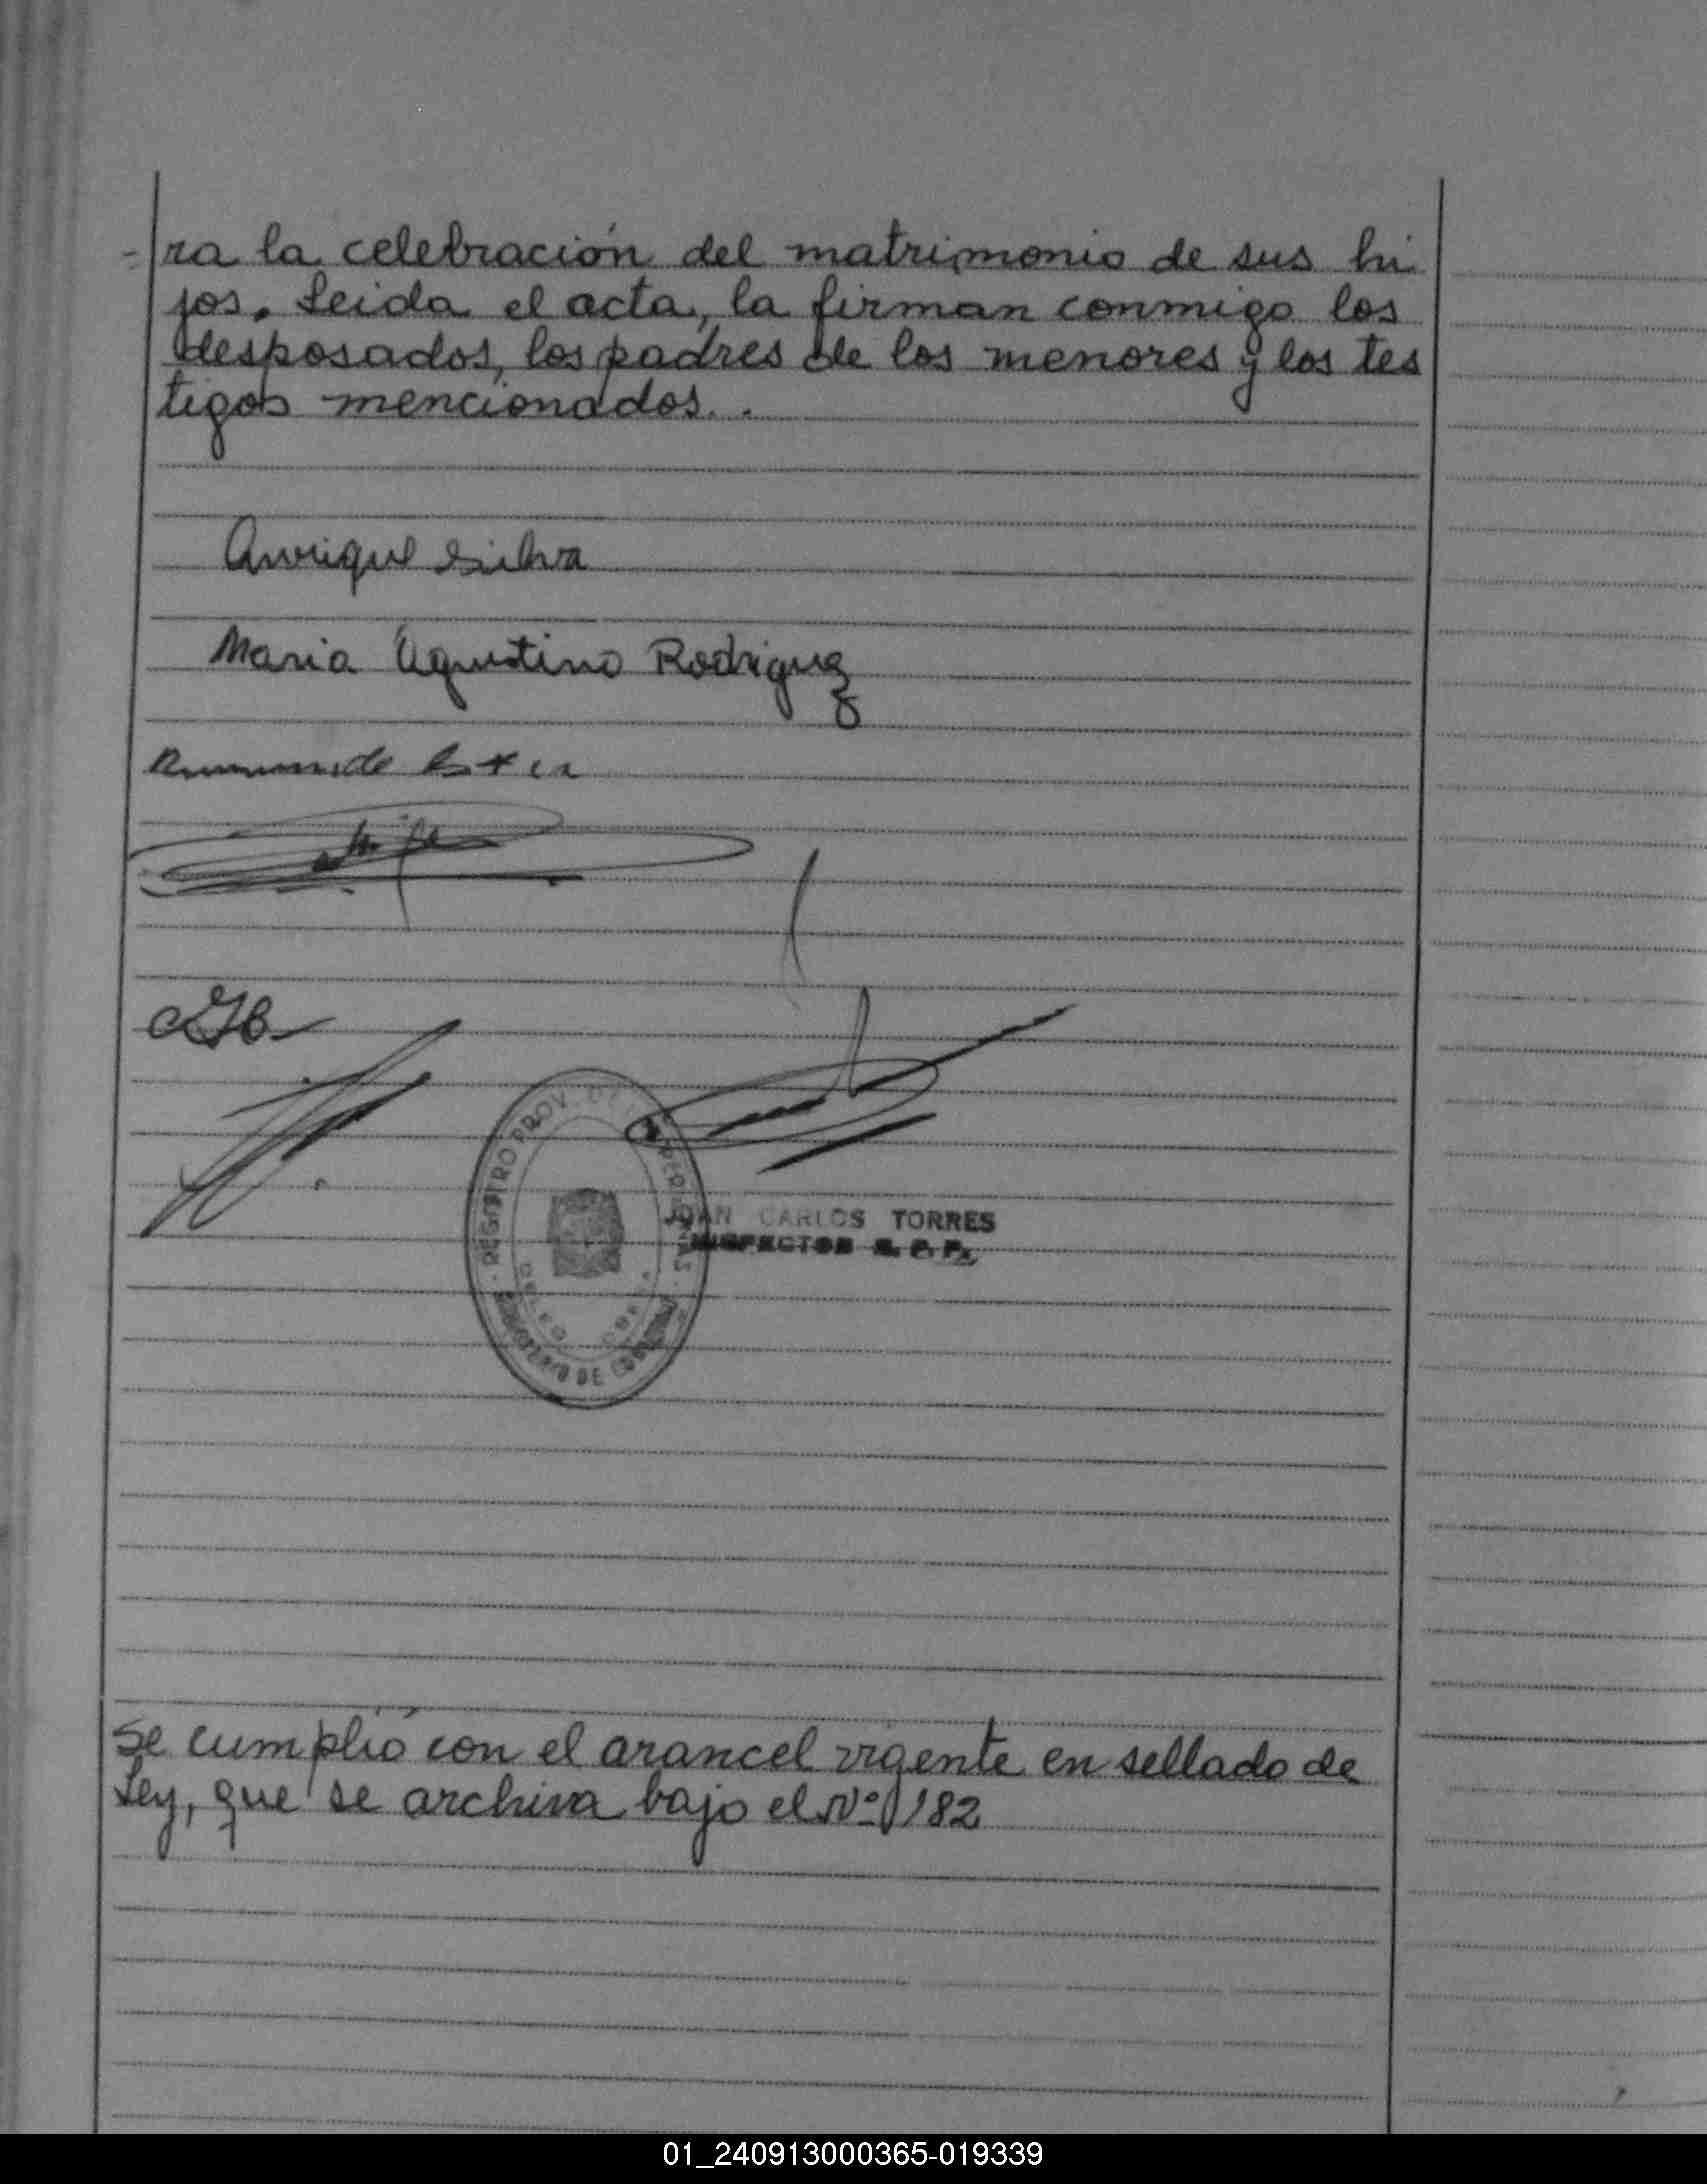 =ra la celebración del matrimonio de sus hi
jos. Leida el acta, la firman conmigo los
desposados, los padres de los menores y los tes
tigos mencionados. .
Anrique Silva
Maria Agustina Rodriguez
REGISTRO PROV. DE
JUAN CARLOS TORRES
INSPECTOR R. P. P.
Se cumplió con el arancel vigente en sellado de
Ley, que se archiva bajo el Nº 182
01_240913000365-019339